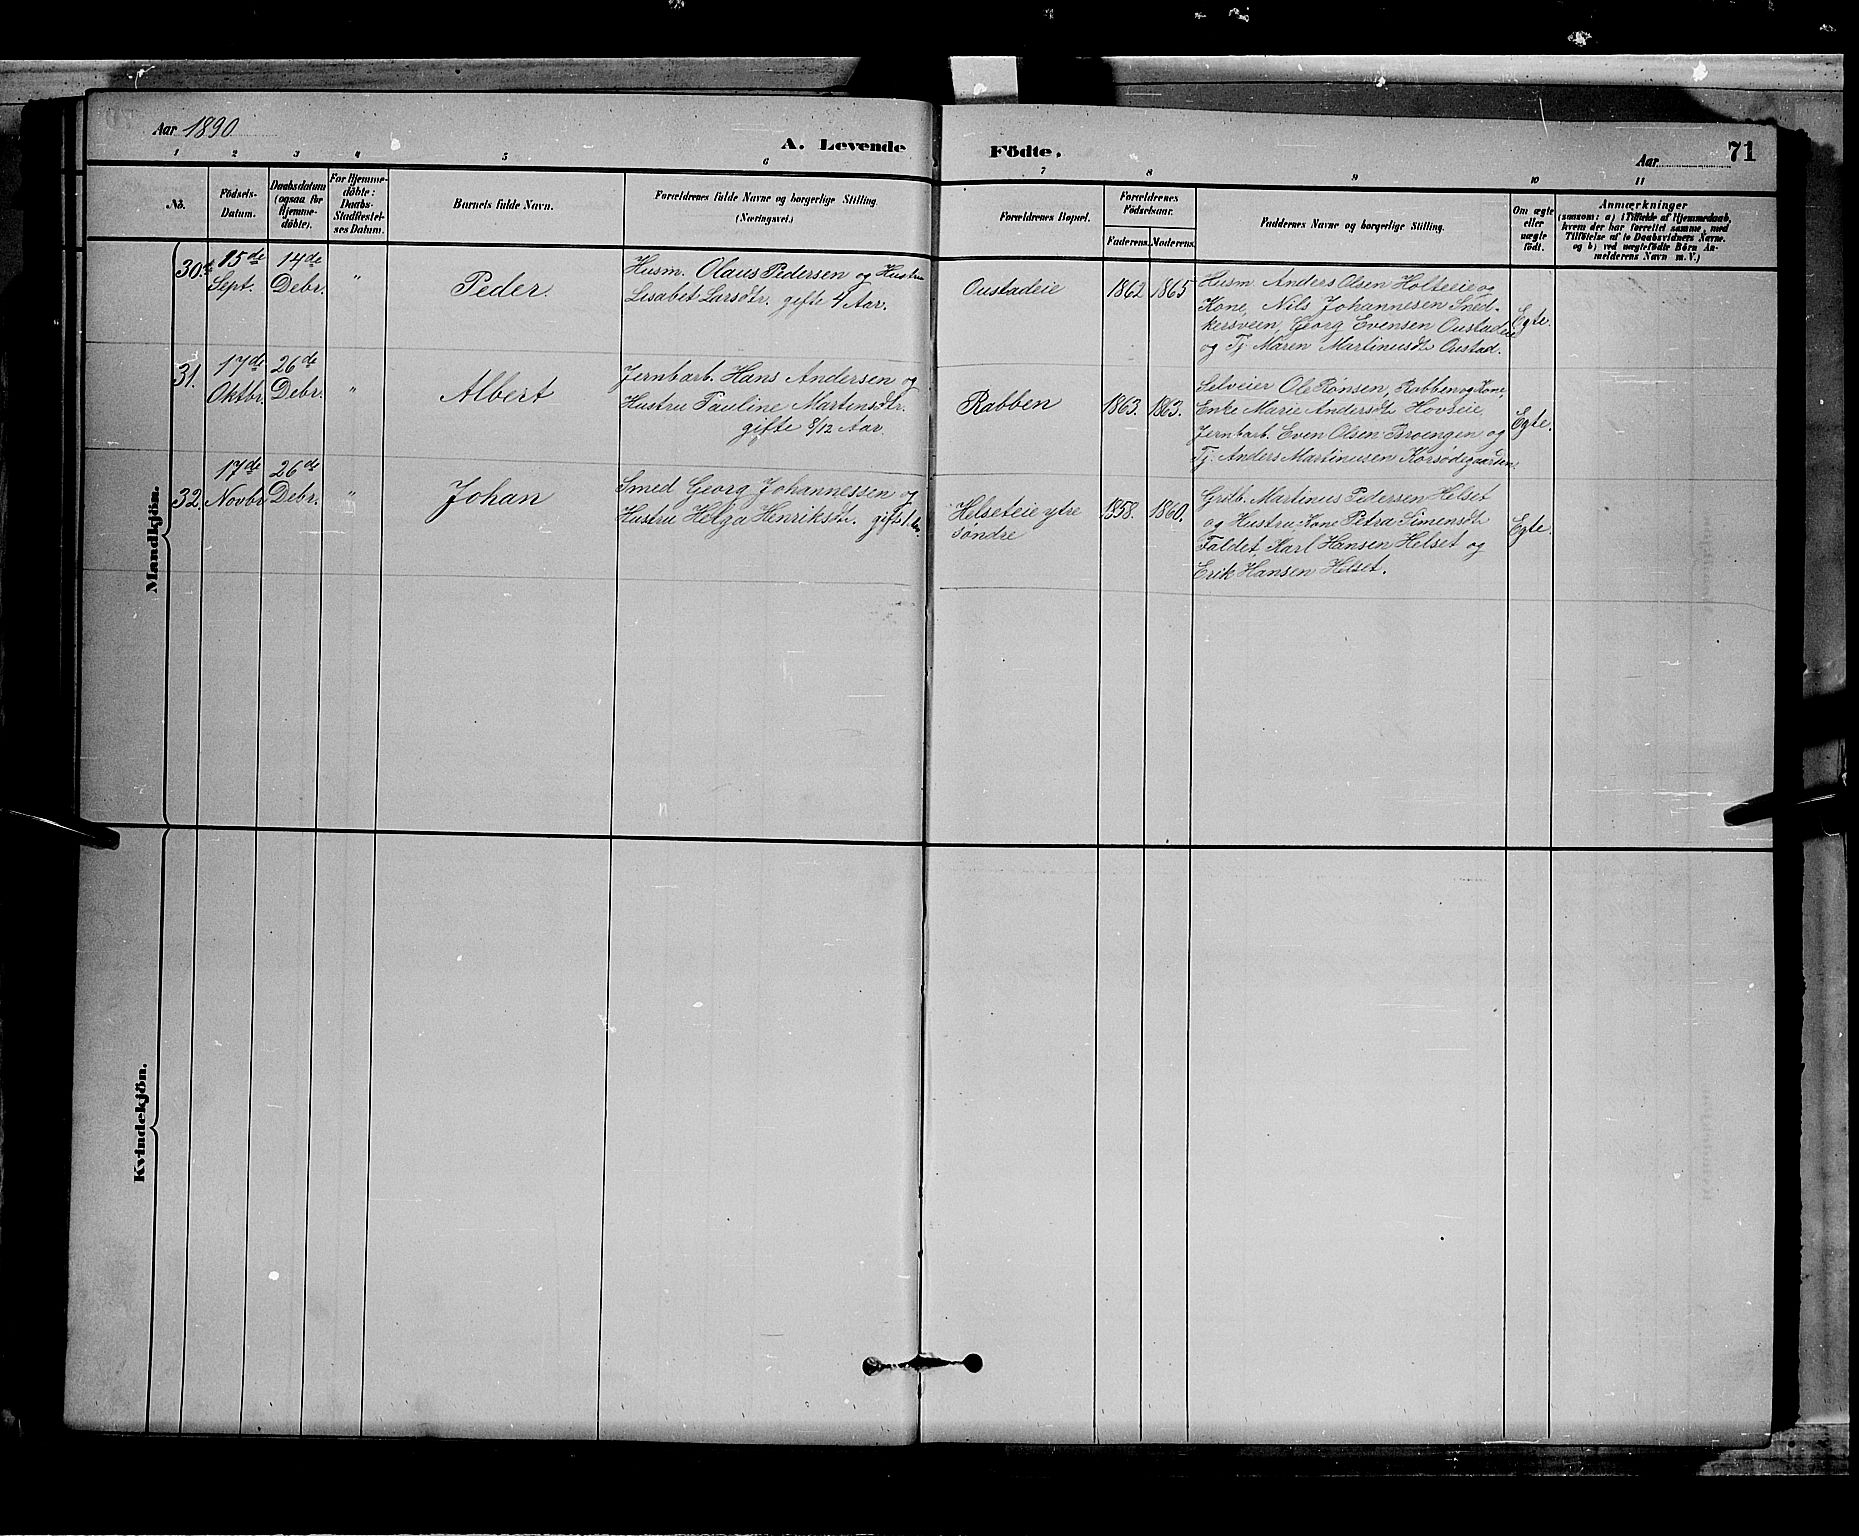 Aar 1890
A. Levende Födte.
Aar 71
1 2 3 4 5 6 7 8 9 10 11
No.
Födsels-
Datum.
Daabsdatum
(ogsaa for
Hjemme-
döbte).
For Hjemme-
döbte:
Daabs-
Stadfæstel-
ses Datum.
Barnets fulde Navn.
Forældrenes fulde Navne og borgerlige Stilling
(Næringsvei.)
Forældrenes Bopæl.
Forældrenes
Födselsaar.
Faderens. Moderens.
Faddernes Navne og borgerlige Stilling.
Om ægte
eller
uægte
födt.
Anmærkninger
(saasom: a) i Tilfælde af Hjemmedaab,
hvem der har forrettet samme, med
Tilföielse af to Daabsvidners Navne.
og b) ved uægtefödte Börn An-
melderens Navn m. V.)
Mandkjön.
30.
15de
Sept.
14de
Debr.
"
Peder.
Husm. Olaus Pedersen og Hustru
Lisabet Larsdtr. gifte 4 Aar.
Oustadeie
1862 1865
Husm. Anders Olsen Holteeie og
Kone, Nils Johannesen Sned-
kersveen, Georg Evensen Oustadeie
og Tj. Maren Martinusdt. Oustad.
Egte.
31.
17de
Oktbr.
26de
Debr.
"
Albert
Jernbarb. Hans Andersen og
Hustru Pauline Martinsdtr.
gifte 8/12 Aar.
Rabben
1863. 1863.
Selveier Ole Rønsen, Rabben og Kone,
Enke Marie Andersdt. Hovseie,
Jernbarb. Even Olsen Broengen og
Tj. Anders Martinusen Korsødegaarden.
Egte.
32.
17de
Novbr.
26de
Debr.
"
Johan
Smed Georg Johannessen og
Hustru Helga Henriksdt. gift 1
Helseteie ytre
søndre
1858. 1860.
Grdb. Martinus Pedersen Helset
og Hustru Kone Petra Simensdt.
Faldet, Karl Hansen Helset og
Erik Hansen Helset.
Egte.
Kvindekjön.